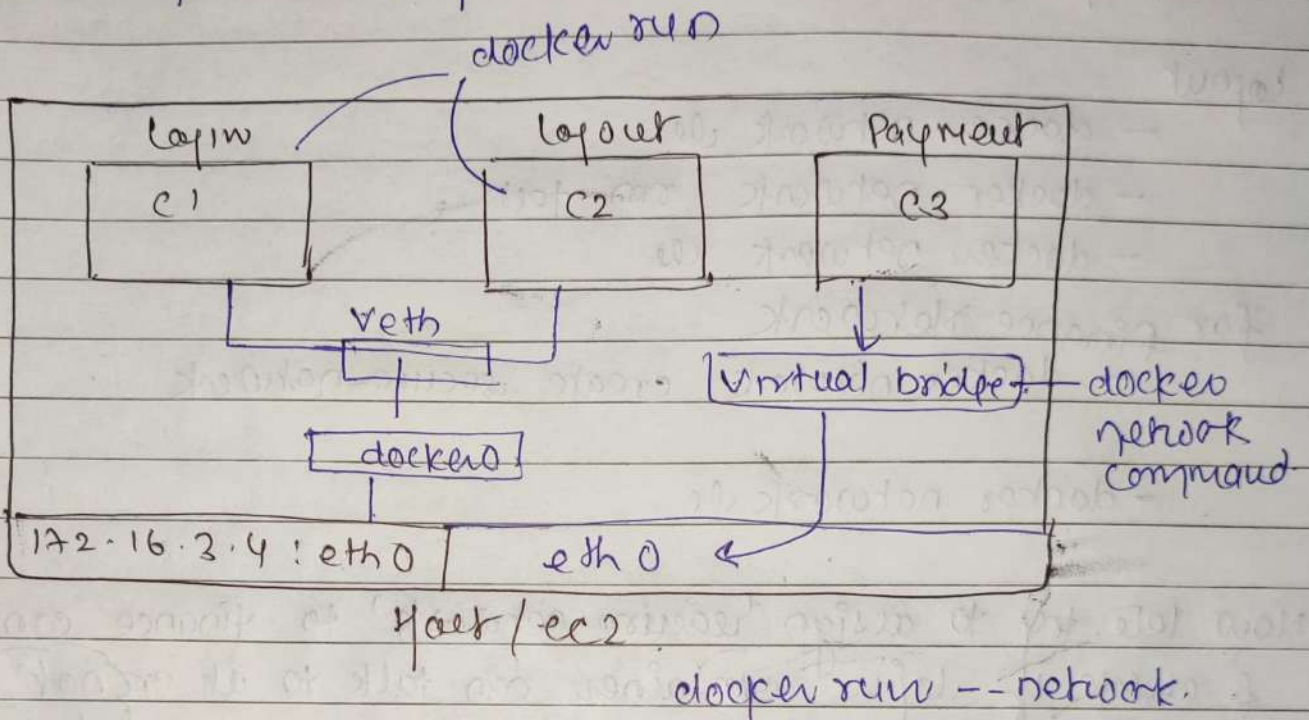 docker run
login logout Payment
C1 C2 C3
veth
virtual bridge docker
network
command
docker0
172.16.3.4 : eth0 eth0
Host/ec2
docker run --network.